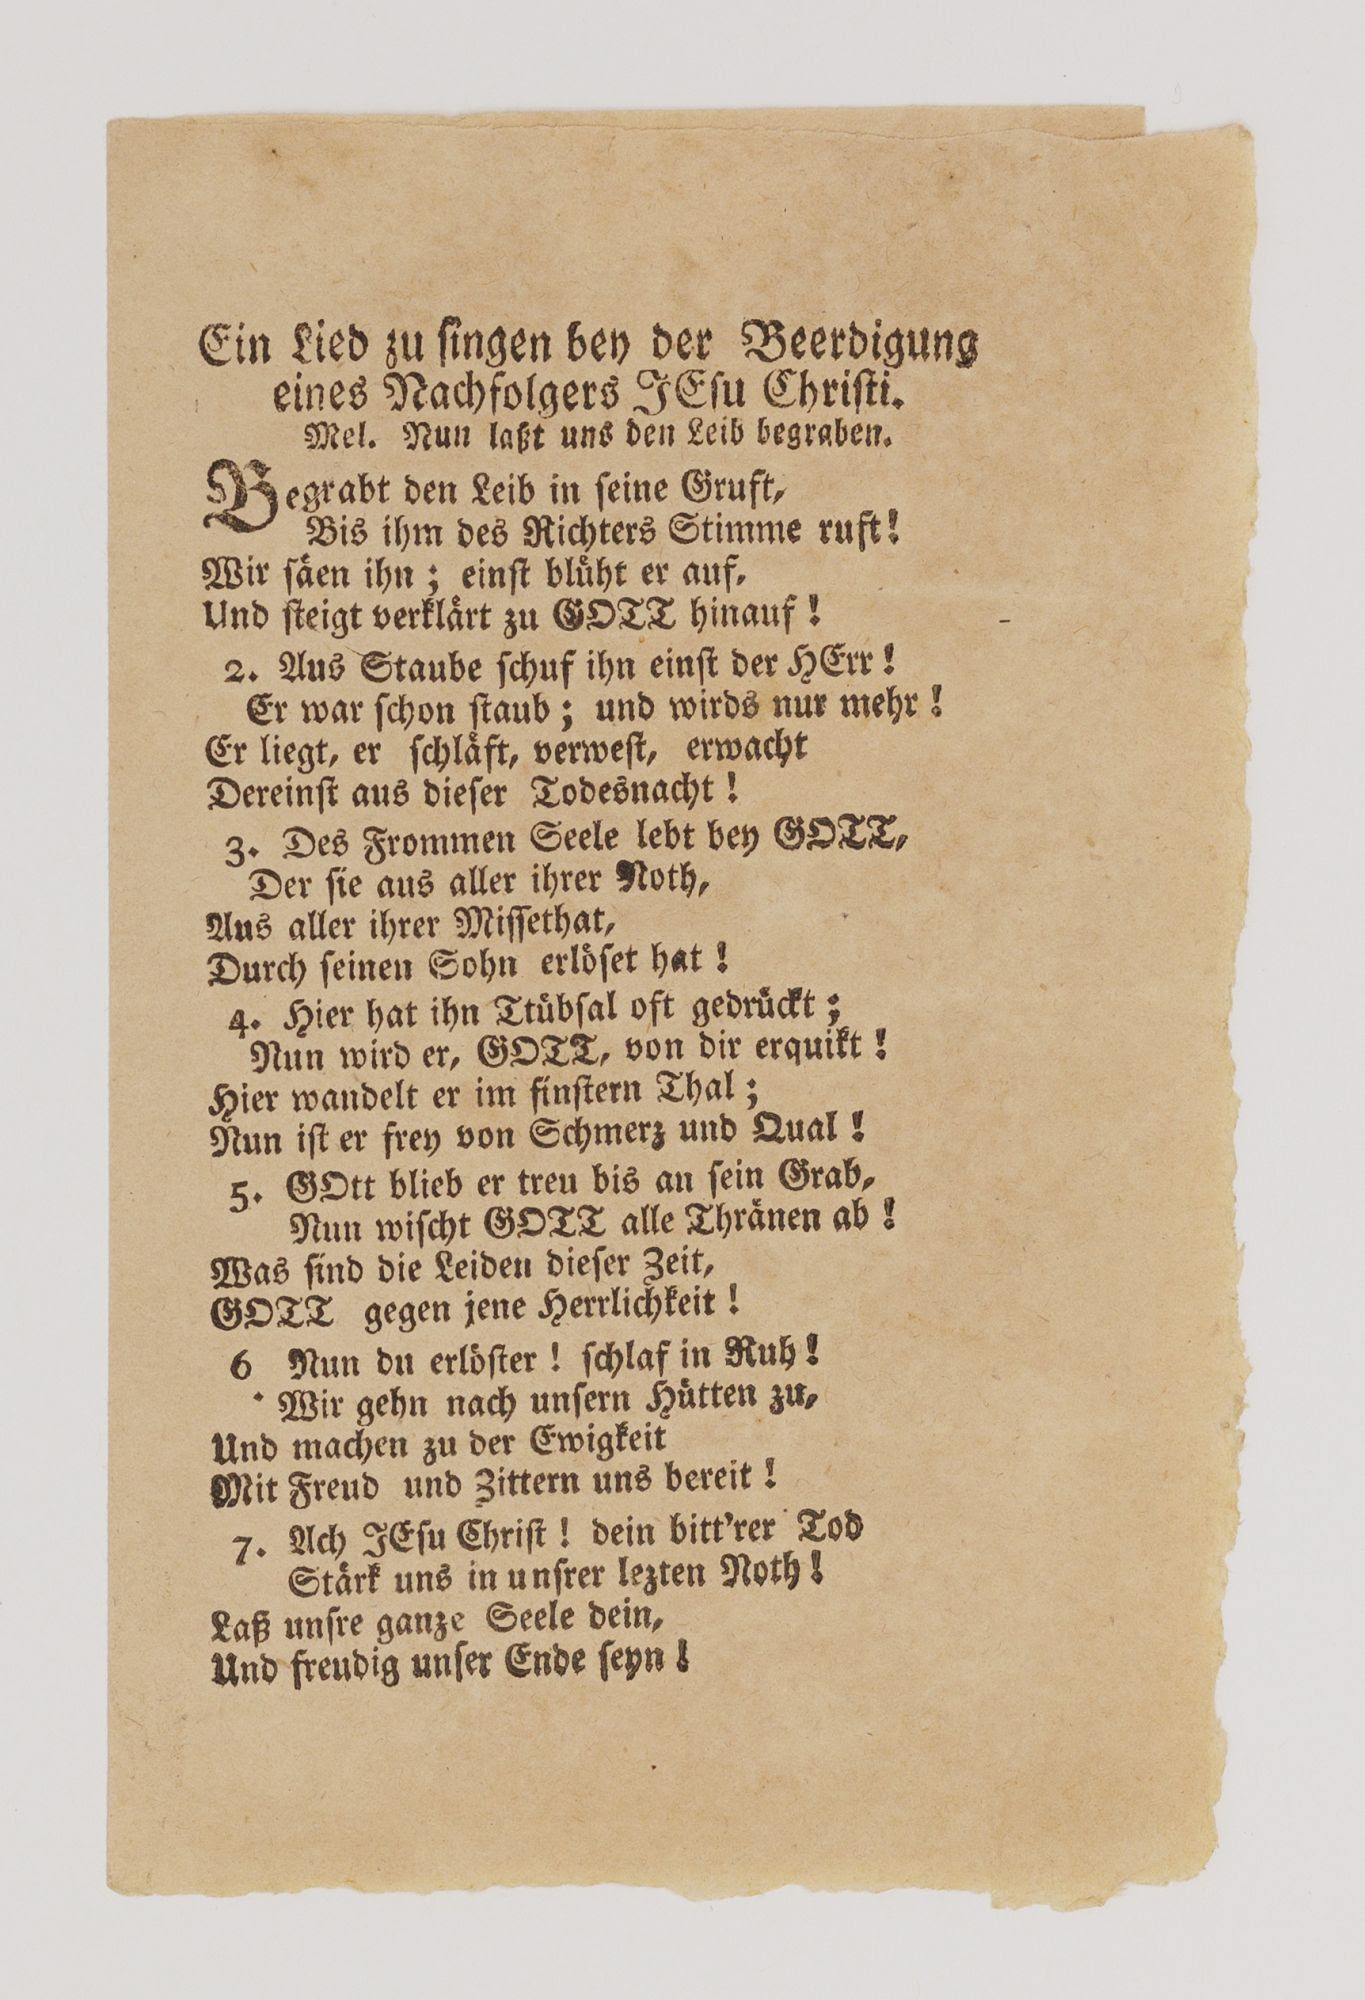 Ein Lied zu singen bey der Beerdigung
eines Nachfolgers JEsu Christi.
Mel. Nun laßt uns den Leib begraben.
Begrabt den Leib in seine Gruft,
Bis ihm des Richters Stimme ruft!
Wir säen ihn; einst blüht er auf,
Und steigt verklärt zu GOTT hinauf!
2. Aus Staube schuf ihn einst der HErr!
Er war schon staub; und wirds nur mehr!
Er liegt, er schläft, verwest, erwacht
Dereinst aus dieser Todesnacht!
3. Des Frommen Seele lebt bey GOTT,
Der sie aus aller ihrer Noth,
Aus aller ihrer Missethat,
Durch seinen Sohn erlöset hat!
4. Hier hat ihn Ttübsal oft gedrückt;
Nun wird er, GOTT, von dir erquikt!
Hier wandelt er im finstern Thal;
Nun ist er frey von Schmerz und Qual!
5. GOtt blieb er treu bis an sein Grab,
Nun wischt GOTT alle Thränen ab!
Was sind die Leiden dieser Zeit,
GOTT gegen jene Herrlichkeit!
6 Nun du erlöster! schlaf in Ruh!
. Wir gehn nach unsern Hütten zu,
Und machen zu der Ewigkeit
Mit Freud und Zittern uns bereit!
7. Ach JEsu Christ! dein bitt'rer Tod
Stärk uns in unsrer lezten Noth!
Laß unsre ganze Seele dein,
Und freudig unser Ende seyn!